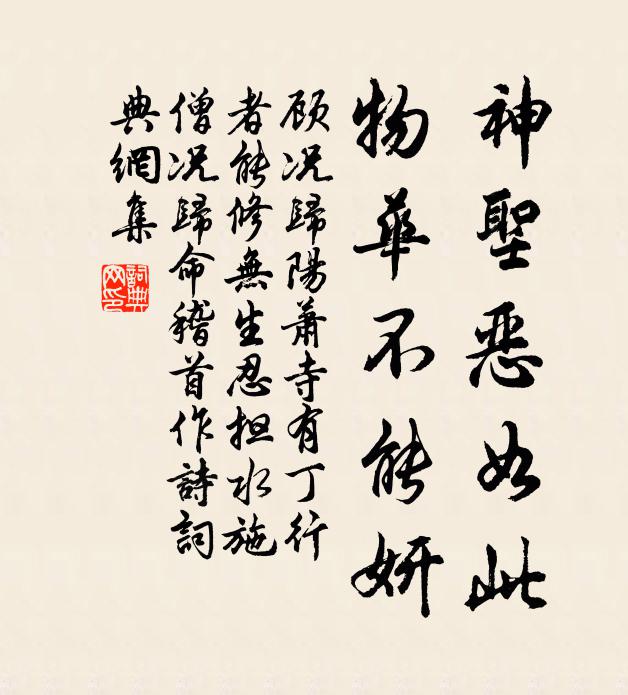 神聖惡如此
物華不能妍
顾况歸陽蕭寺有丁行
者能修無生忍担水施
僧况歸命稽首作詩詞
典網集
詞典網印